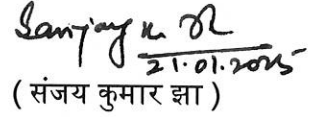 Sanjay K
21.01.2025
( संजय कुमार झा )